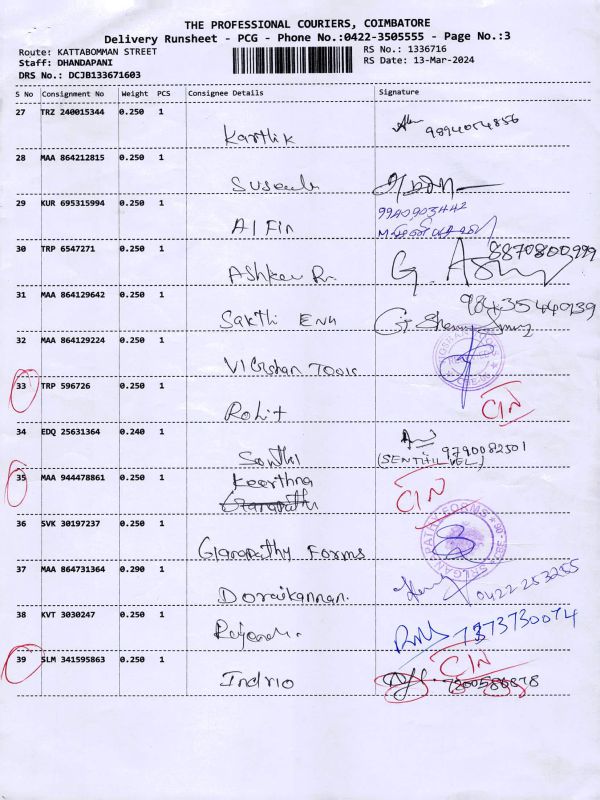 THE PROFESSIONAL COURIERS, COIMBATORE
Delivery Runsheet - PCG - Phone No.:0422-3505555 - Page No.:3
Route: KATTABOMMAN STREET
RS No.: 1336716
Staff: DHANDAPANI
RS Date: 13-Mar-2024
DRS No.: DCJB133671603
S No Consignment No Weight PCS Consignee Details Signature
27 TRZ 240015344 0.250 1
Karthik 9894054856
28 MAA 864212815 0.250 1
29 KUR 695315994 0.250 1 9940903442
Al Fin
30 TRP 6547271 0.250 1 8870800999
Ashker Rn.
31 MAA 864129642 0.250 1 9843544039
Sakthi Enn
32 MAA 864129224 0.250 1
Vibishan Tools
33 TRP 596726 0.250 1
Rohit CIN
34 EDQ 25631364 0.240 1 9790082501
Senthil (SENTHIL VEL)
35 MAA 944478861 0.250 1 CIN
Keerthna
Ganapathi
36 SVK 30197237 0.250 1
Ganapathy Forms
SRI GANAPATHY FORMS
37 MAA 864731364 0.290 1
Doraikannan. 0422-253255
38 KVT 3030247 0.250 1 7373730074
39 SLM 341595863 0.250 1 CIN
Indrio